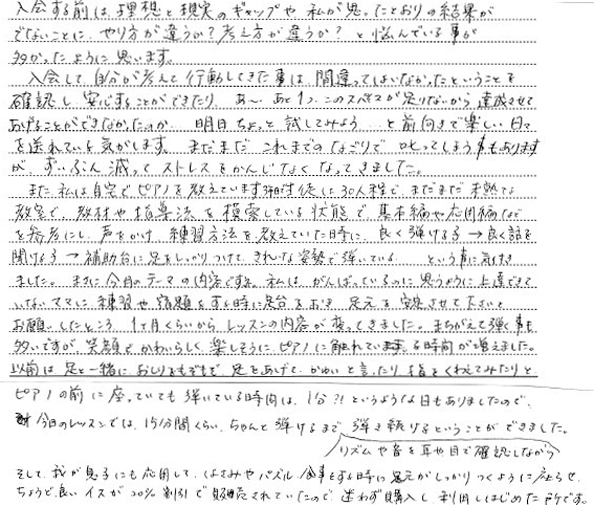 入会する前は、理想と現実のギャップや私が思ったとおりの結果が
でないことに、やり方が違うか？考え方が違うか？と悩んでいる事が
多かったように思います。
入会して、自分が考えて行動してきた事は間違ってはいなかったということを
確認し、安心することができたり、あ〜、あと1つ、このスパイスが足りないから達成させて
あげることができなかったのか、明日ちょっと試してみよう…と前向きで楽しい日々
を送れている気がします。まだまだ、これまでのなごりで叱ってしまう事もあります
が、ずいぶん減ってストレスをかんじなくなってきました。
また、私は自宅でピアノを教えています。生徒は30人程で、まだまだ未熟な
教室で、教材や指導法を模索している状態で、基本編や応用編など
を参考にし、声をかけ、練習方法を教えていた時に、良く弾ける子→良く話を
聞ける子→補助台に足をしっかりつけて、きれいな姿勢で弾いている…という事に気付き
ました。まさに今月のテーマの内容ですね。私は、がんばっているのに思うように上達できて
いないママに、練習や宿題をする時に足台をおき、足元を安定させて下さいと
お願いしたところ、1ヶ月くらいからレッスンの内容が変ってきました。まちがえて弾く事も
多いですが、笑顔でかわいらしく楽しそうにピアノに触れています。る時間が増えました。
以前は足と一緒におしりもモゾモゾ、足をあげて、かゆいと言ったり指をくわえてみたりと
ピアノの前に座っていても弾いている時間は、1分?!というような日もありましたので、
今日のレッスンでは、15分間くらい、ちゃんと弾けるまで弾き続けるということができました。
リズムや音を耳や目で確認しながら
そして、我が息子にも応用して、はさみやパズル、食事をする時に足元がしっかりつくように座らせ、
ちょうど良いイスが20%割引で販売されていたので、迷わず購入し利用しはじめた所です。